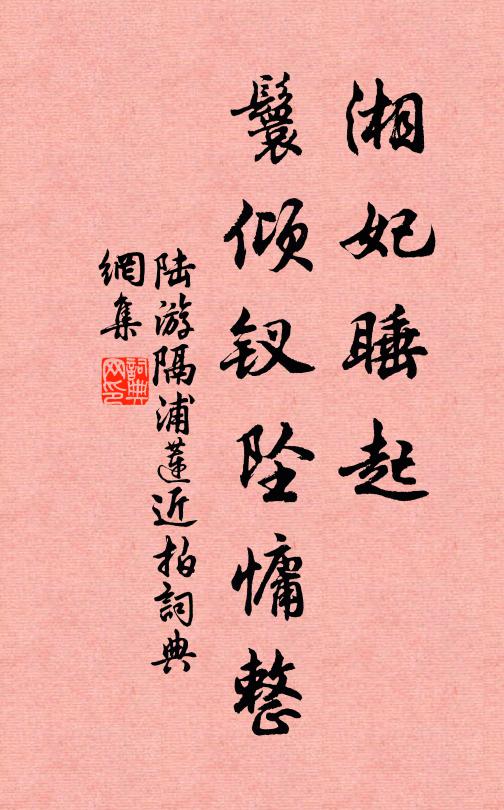 湘妃睡起
鬟倾钗坠慵整
陆游隔浦莲近拍詞典
網集
詞典网印